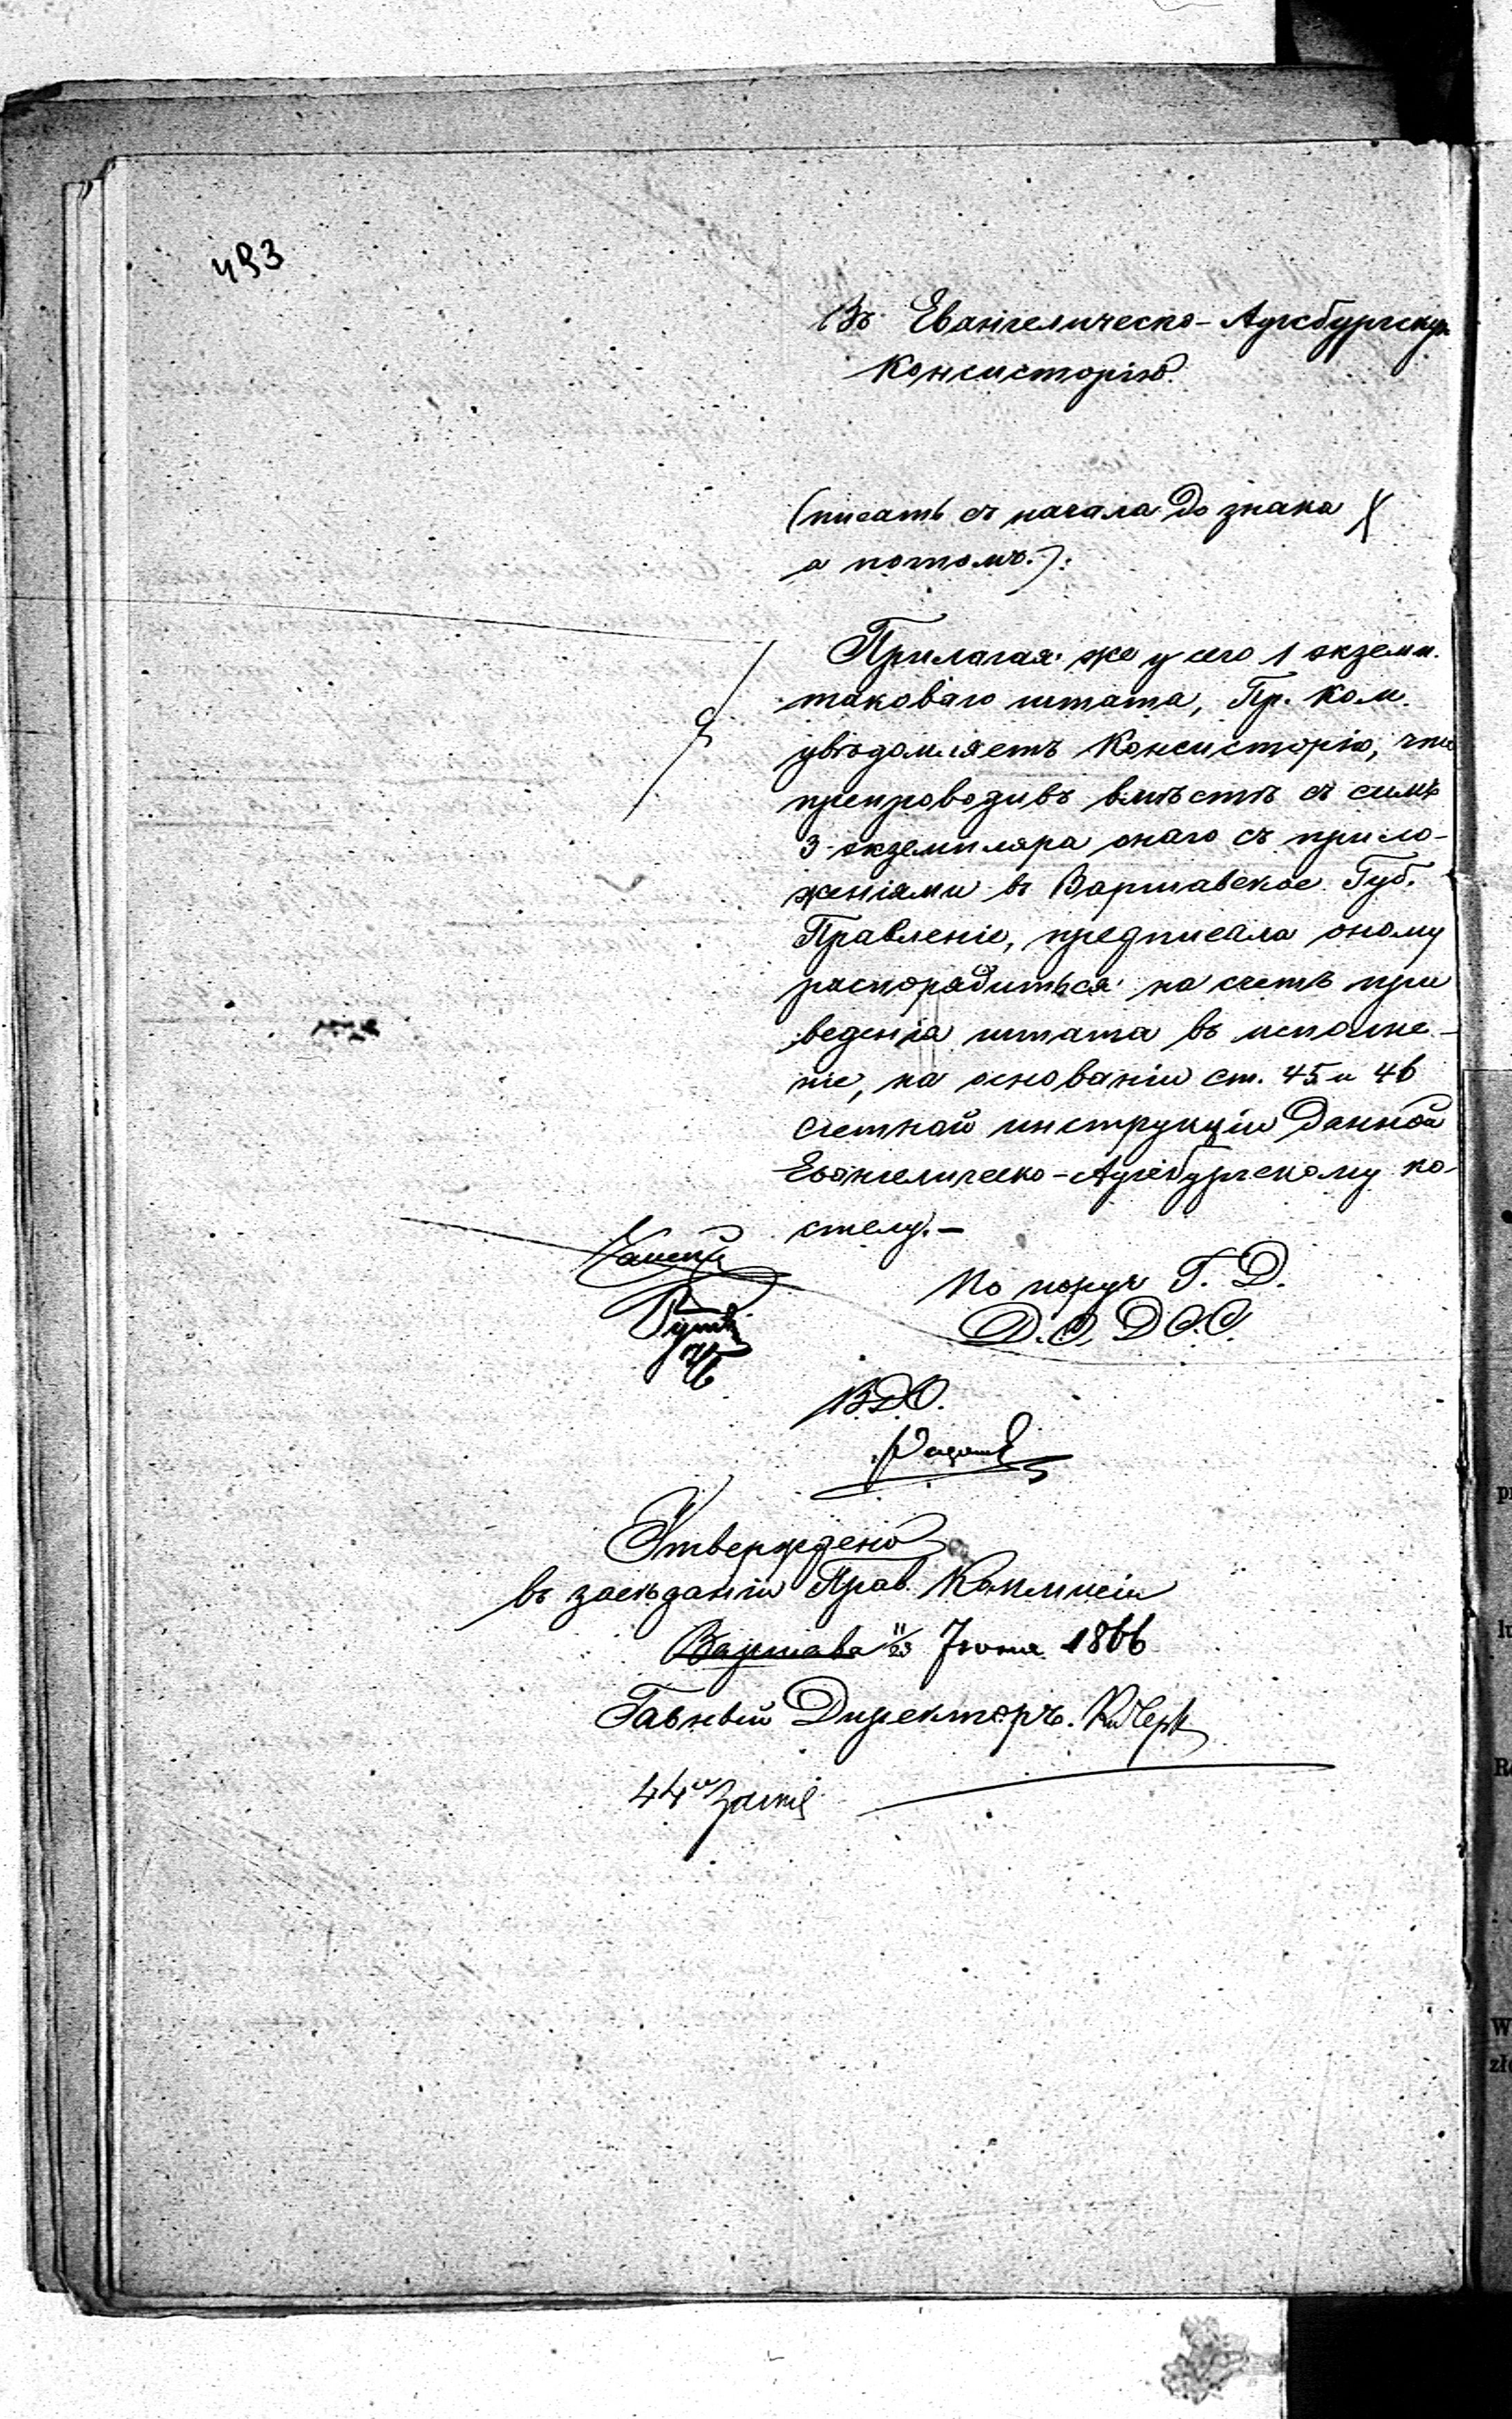 493
Въ Евангелическо-Аугсбургскую
Консисторію.
(писать съ начала до знака X
а потомъ.):
Прилагая же у сего 1 экземп.
таковаго штата, Пр. Ком.
увѣдомляетъ Консисторію, что
препроводивъ вмѣстѣ съ симъ
3 экземпляра онаго съ прило-
женіями въ Варшавское Губ.
Правленіе, предписала оному
распорядиться на счетъ при
веденія штата въ исполне-
ніе, на основаніи ст. 45 и 46
счетной инструкціи данной
Евангелическо-Аугсбургскому ко-
стелу.—
По поруч Г. Д.
Д. Д. О. С.
В. Д. О.
Утверждено
въ засѣданіи Прав. Коммисіи
Варшава 11/23 Іюня 1866
Гавный Директоръ.
44